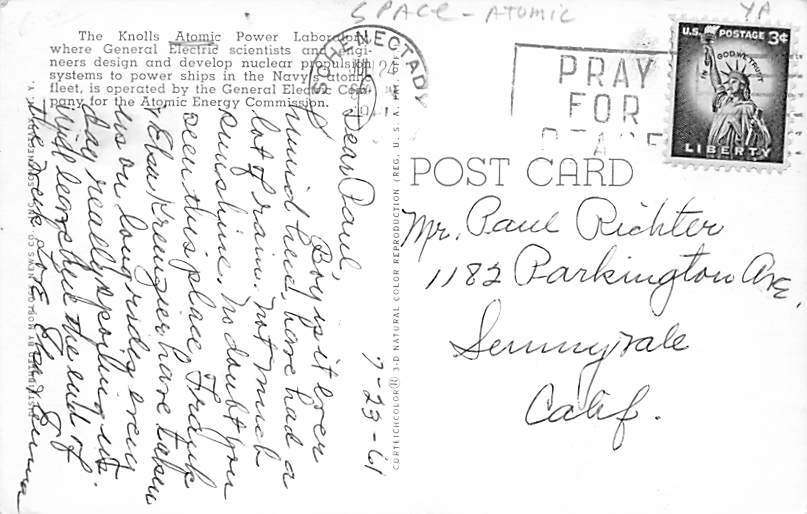 SPACE - ATOMIC
YA
The Knolls Atomic Power Laboratory,
where General Electric scientists and engi-
neers design and develop nuclear propulsion
systems to power ships in the Navy's atomic
fleet, is operated by the General Electric Com-
pany for the Atomic Energy Commission.
SCHENECTADY
24
PRAY
FOR
PEACE
U.S. POSTAGE 3¢
IN GOD WE TRUST
LIBERTY
POST CARD
Mr. Paul Richter
1182 Parkington Ave.
Sunnyvale
Calif.
7-23-61
Dear Paul,
Boy is it ever
humid here, have had a
lot of rain. Not much
sunshine. No doubt you
seen this place. Frank
& Elsa have taken
us on long rides every
day really spoiling us.
Will leave here the end of
the week. Love
CURTEICHCOLOR® 3-D NATURAL COLOR REPRODUCTION (REG. U.S.A. PAT. OFF.)
DISTRIBUTED BY